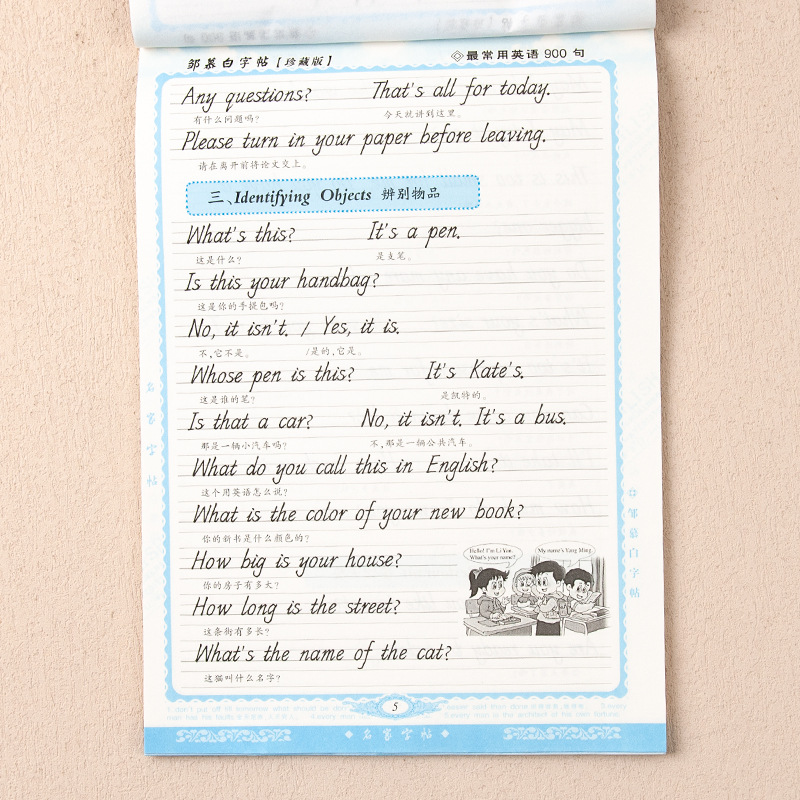 邹慕白字帖【珍藏版】 ◇最常用英语 900 句
Any questions? That's all for today.
有什么问题吗? 今天就讲到这里。
Please turn in your paper before leaving.
请在离开前将论文交上。
三、Identifying Objects 辨别物品
What's this? It's a pen.
这是什么? 是支笔。
Is this your handbag?
这是你的手提包吗?
No, it isn't. / Yes, it is.
不,它不是。 /是的,它是。
Whose pen is this? It's Kate's.
这是谁的笔? 是凯特的。
Is that a car? No, it isn't. It's a bus.
那是一辆小汽车吗? 不,那是一辆公共汽车。
What do you call this in English?
这个用英语怎么说?
What is the color of your new book?
你的新书是什么颜色的?
How big is your house?
你的房子有多大?
Hello! I'm Li Yen.
What's your name?
My name's Yang Ming.
How long is the street?
这条街有多长?
What's the name of the cat?
这猫叫什么名字?
名家字帖
邹慕白字帖
5
名家字帖